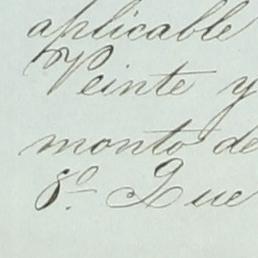 aplicable
Veinte y
monto de
8º. Que